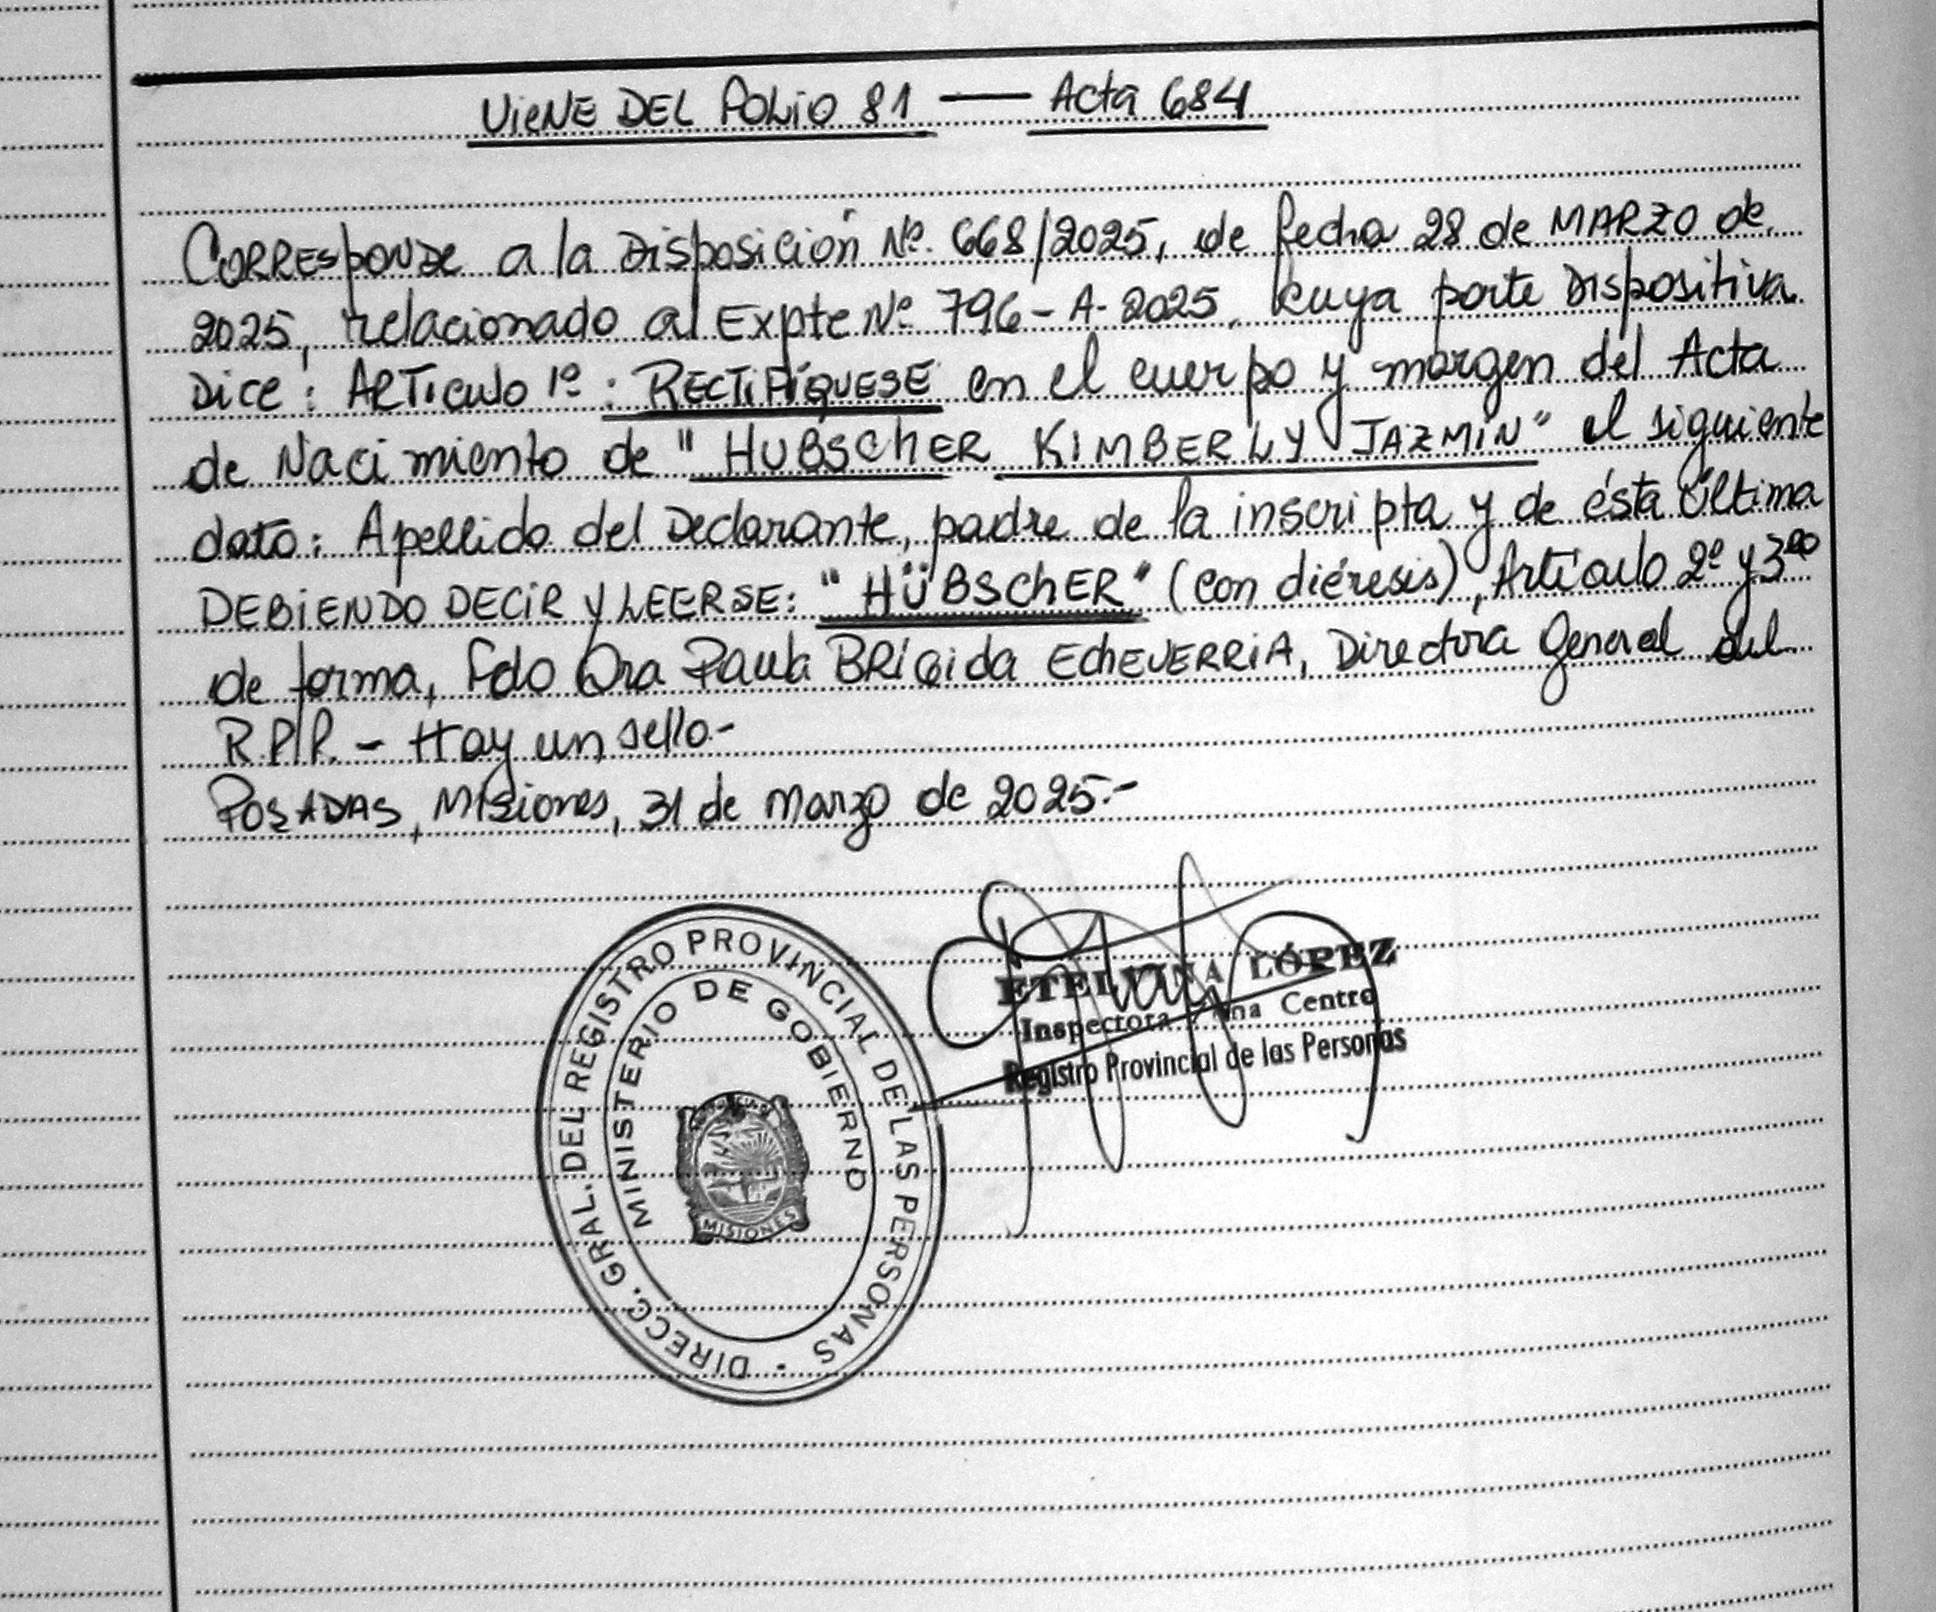 ViENE DEL FOLiO 81 — Acta 684
CORRESPONDE a la Disposición Nº. 668/2025, de fecha 28 de MARZO de
2025, relacionado al Expte Nº 796-A-2025, cuya parte Dispositiva
Dice: ARTiculo 1º: RECTIFÍQUESE en el cuerpo y margen del Acta
de Nacimiento de "HUBSCHER KIMBERLY JAZMIN" el siguiente
dato: Apellido del Declarante, padre de la inscripta y de ésta última
DEBIENDO DECIR Y LEERSE: "HÜBSCHER" (con diéresis), Artículo 2º y 3ro
de forma, Fdo Dra Paula BRÍGida ECHEVERRIA, Directora General del
R.P.P. - Hay un sello.-
POSADAS, Misiones, 31 de Marzo de 2025.-
DIRECC. GRAL. DEL REGISTRO PROVINCIAL DE LAS PERSONAS -
MINISTERIO DE GOBIERNO
MISIONES
ETELVINA LÓPEZ
Inspectora Centro
Registro Provincial de las Personas